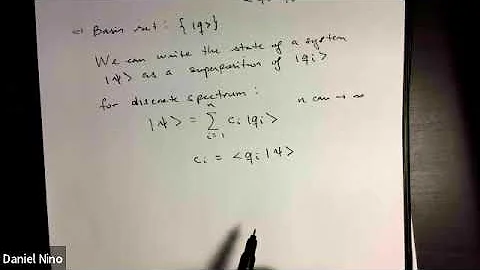 Basis set: {|q>}
We can write the state of a system
|ψ> as a superposition of |qi>
for discrete spectrum: n can → ∞
|ψ> = Σ i=1 n ci |qi>
ci = <qi|ψ>
Daniel Nino